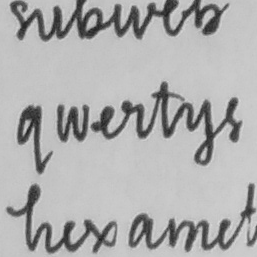 subweb
qwertys
hexamet